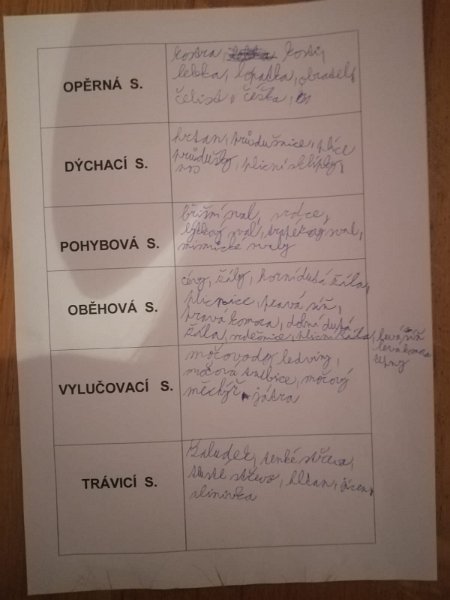 OPĚRNÁ S.
kostra, kosti,
lebka, lopatka, obratel,
čelist, čéška,
DÝCHACÍ S.
hrtan, průdušnice, plíce
průdušky, plicní sklípky,
nos
POHYBOVÁ S.
břišní sval, srdce,
lýtkový sval, sval,
mimické svaly
OBĚHOVÁ S.
cévy, žíly, horní dutá žíla,
plicnice, pravá síň,
pravá komora, dolní dutá
žíla, srdečnice, plicní žíla, levá síň
levá komora
VYLUČOVACÍ S.
močovody, ledviny,
močová trubice, močový
měchýř, játra
TRÁVICÍ S.
žaludek, tenké střevo,
tlusté střevo, hltan,
slinivka